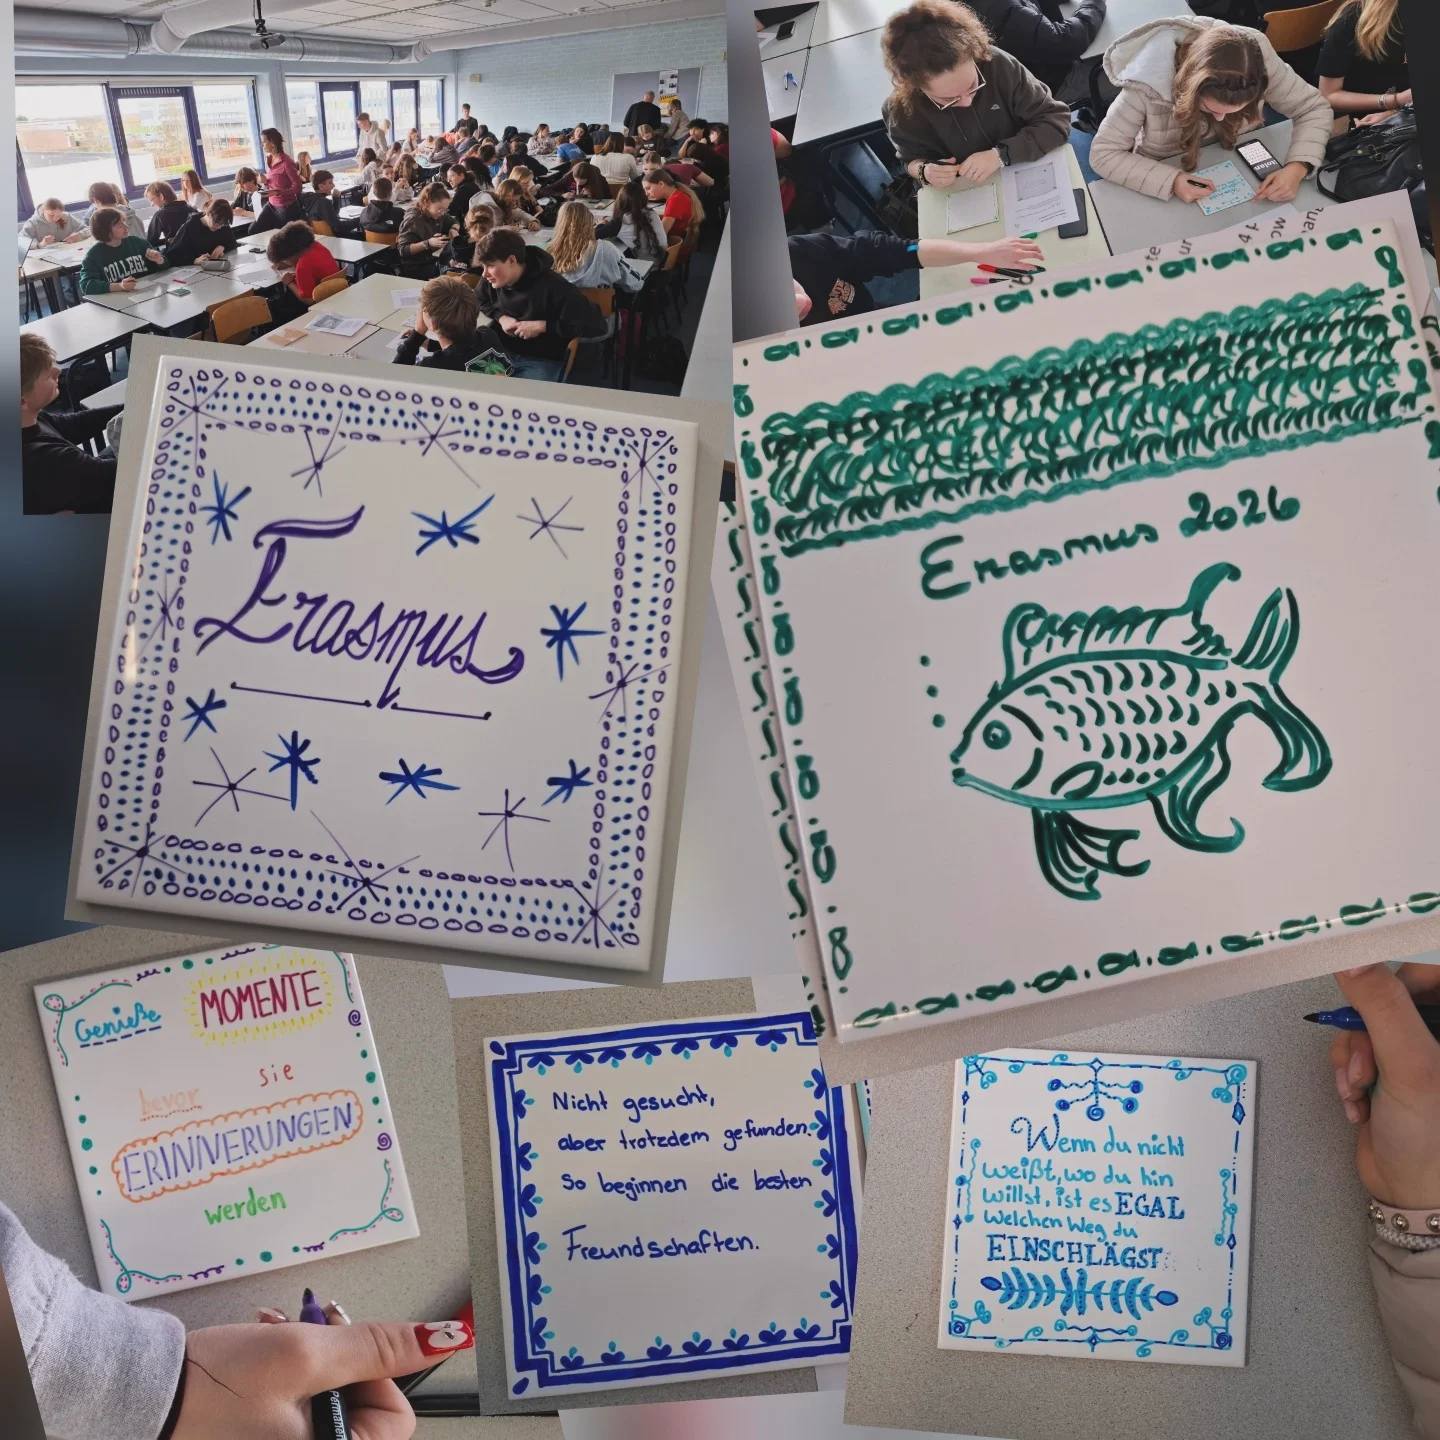 COLLEGE
Erasmus
Erasmus 2026
Genieße
MOMENTE
bevor sie
ERINNERUNGEN
werden
Permanen
Nicht gesucht,
aber trotzdem gefunden.
So beginnen die besten
Freundschaften.
Wenn du nicht
weißt, wo du hin
willst, ist es EGAL
welchen Weg du
EINSCHLÄGST